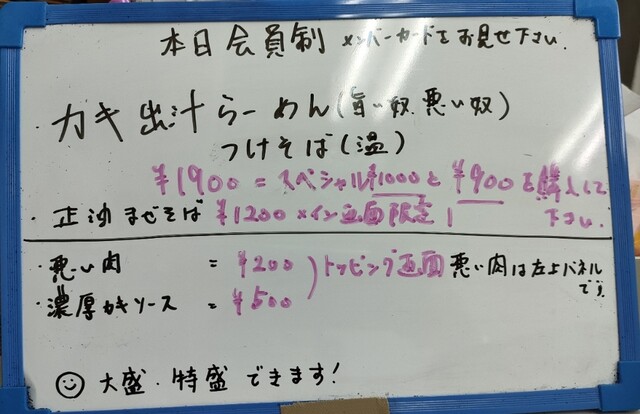 本日会員制 メンバーカードをお見せ下さい.
・カキ出汁らーめん(旨い奴.悪い奴)
つけそば(温)
¥1900=スペシャル¥1000と¥900を購入して下さい.
・正油まぜそば ¥1200 メイン画面限定1
・悪い肉 = ¥200
・濃厚カキソース = ¥500
)トッピング画面 悪い肉は左上パネルです.
大盛.特盛できます!